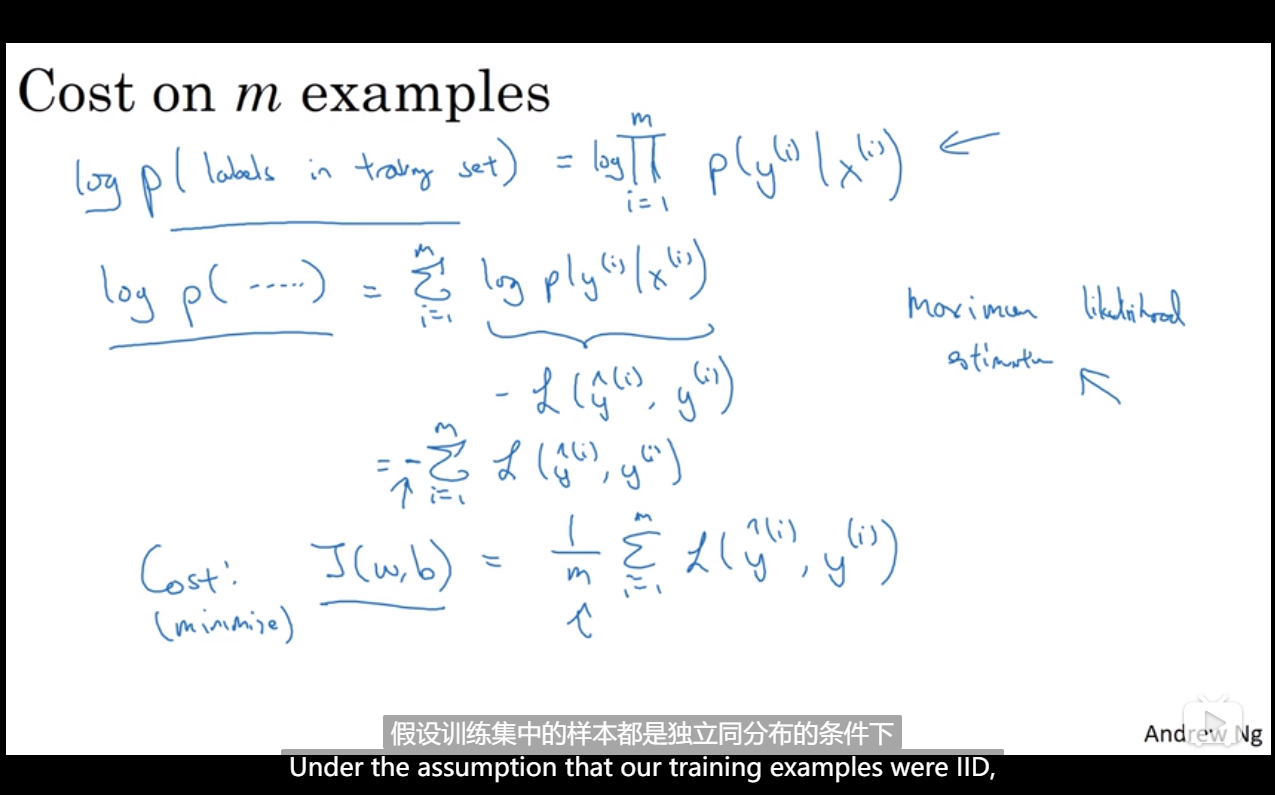 Cost on m examples
log p(labels in training set) = log ∏_{i=1}^{m} p(y^{(i)}|x^{(i)}) ←
log p(.....) = ∑_{i=1}^{m} log p(y^{(i)}|x^{(i)})
Maximum likelihood
estimation ↖
- ℒ(ŷ^{(i)}, y^{(i)})
= - ∑_{i=1}^{m} ℒ(ŷ^{(i)}, y^{(i)})
↑
Cost: J(w,b) = 1/m ∑_{i=1}^{m} ℒ(ŷ^{(i)}, y^{(i)})
(minimize) ↑
假设训练集中的样本都是独立同分布的条件下
Andrew Ng
Under the assumption that our training examples were IID,